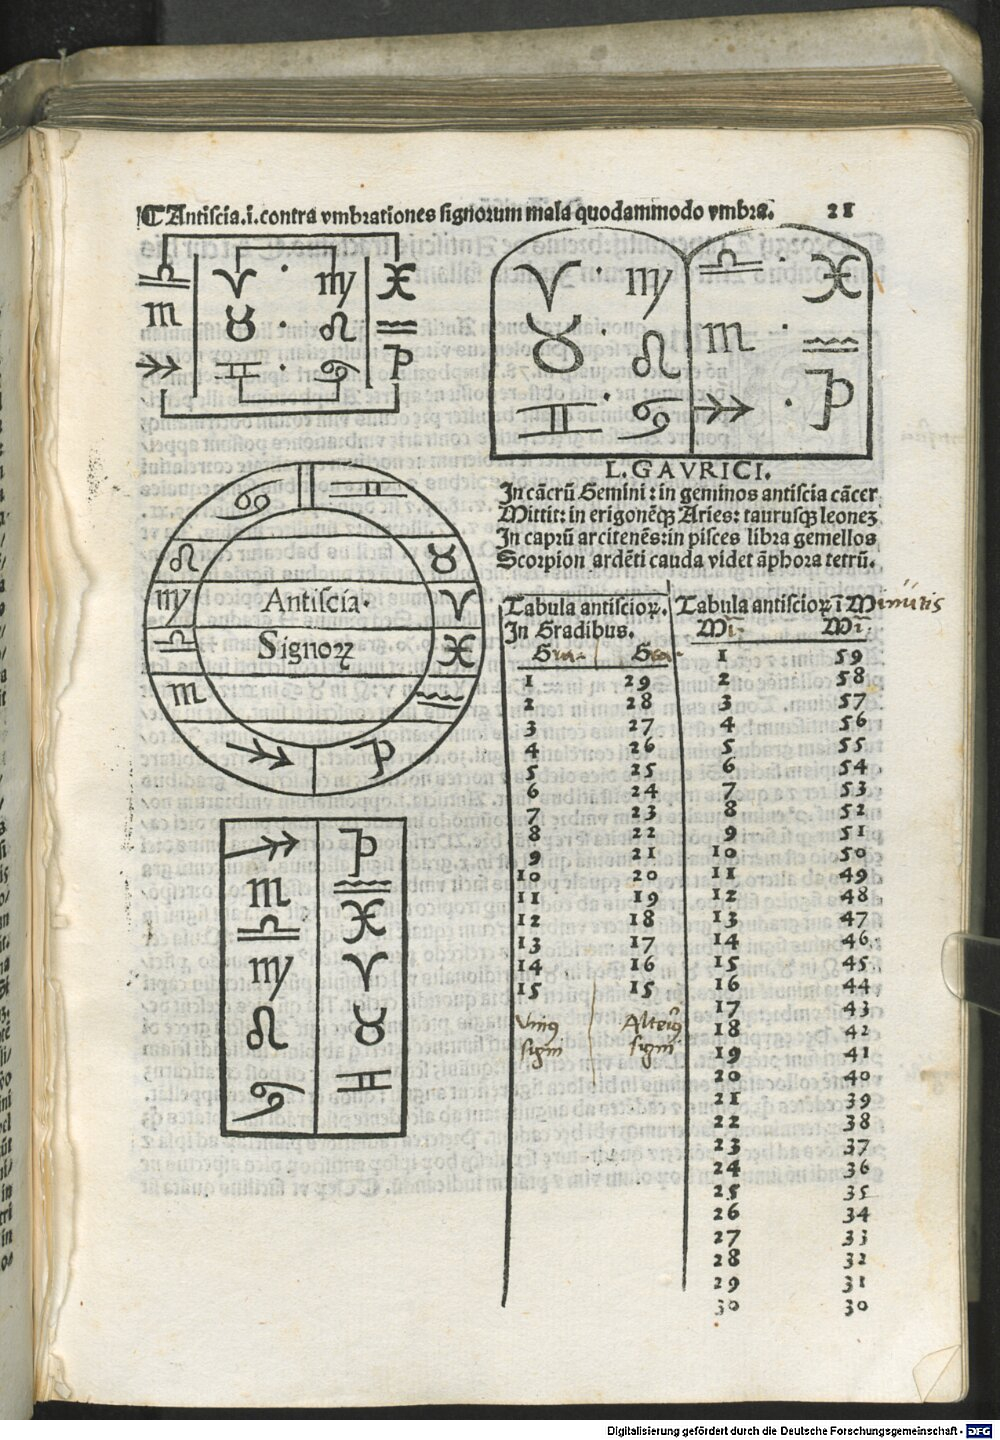 ¶ Antiscia.i.contra vmbrationes signorum mala quodammodo vmbra. 21
♎ ♈ · ♍ ♓
♏ ♉ · ♌ ♒
♐ ♊ · ♋ ♑
♈ · ♍ ♎ · ♓
♉ · ♌ ♏ · ♒
♊ · ♋ ♐ · ♑
L. GAVRICI.
In cãcrũ Gemini : in geminos antiscia cãcer
Mittit: in erigonẽqꝫ Aries: taurusqꝫ leonez
In caprũ arcitenẽs: in pisces libra gemellos
Scorpion ardẽti cauda videt ãphora tetrũ.
♋ ♊
♌ ♉
♍ Antiscia. ♈
♎ Signoꝝ ♓
♏ ♒
♐ ♑
♐ ♑
♏ ♒
♎ ♓
♍ ♈
♌ ♉
♋ ♊
Tabula antiscioꝝ.
In Gradibus.
Gra. Gra.
1 29
2 28
3 27
4 26
5 25
6 24
7 23
8 22
9 21
10 20
11 19
12 18
13 17
14 16
15 15
Vnius Alterius
signi signi
Tabula antiscioꝝ ĩ Minutis
Mĩ. Mĩ.
1 59
2 58
3 57
4 56
5 55
6 54
7 53
8 52
9 51
10 50
11 49
12 48
13 47
14 46
15 45
16 44
17 43
18 42
19 41
20 40
21 39
22 38
23 37
24 36
25 35
26 34
27 33
28 32
29 31
30 30
Digitalisierung gefördert durch die Deutsche Forschungsgemeinschaft - DFG